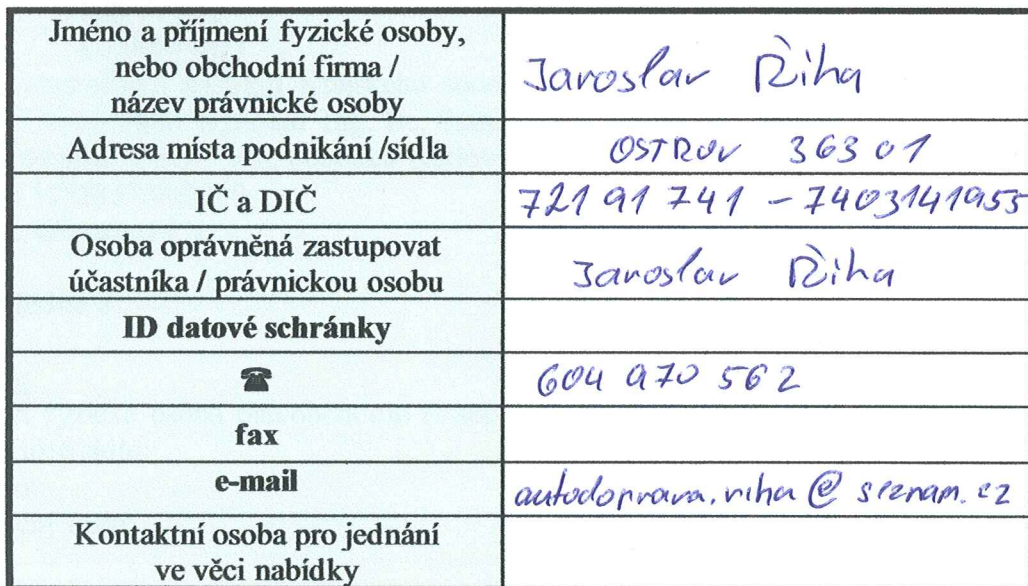 Jméno a příjmení fyzické osoby,
nebo obchodní firma /
název právnické osoby
Jaroslav Říha
Adresa místa podnikání /sídla
OSTROV 363 01
IČ a DIČ
721 91 741 - 7403141955
Osoba oprávněná zastupovat
účastníka / právnickou osobu
Jaroslav Říha
ID datové schránky
☎
604 970 562
fax
e-mail
autodoprava.riha@seznam.cz
Kontaktní osoba pro jednání
ve věci nabídky